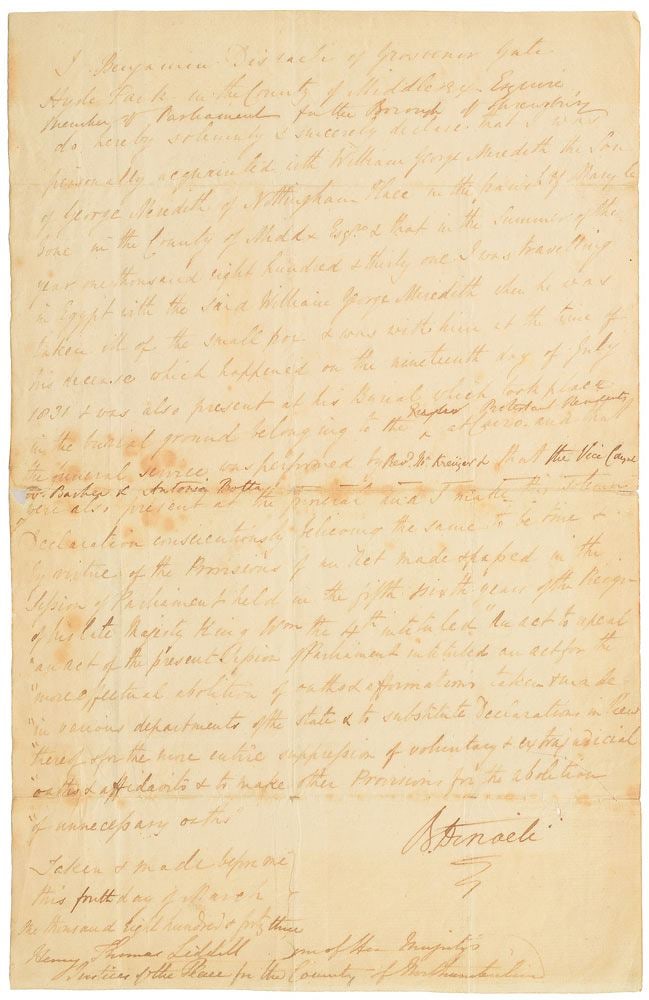 I Benjamin Disraeli of Grosvenor Gate
Hyde Park in the County of Middlesex Esquire
Member of Parliament for the Borough of Shrewsbury
do hereby solemnly & sincerely declare that I was
personally acquainted with William George Meredith the Son
of George Meredith of Nottingham Place in the parish of Mary le
bone in the County of Middx Esqre & that in the Summer of the
year one thousand eight hundred & thirty one I was travelling
in Egypt with the said William George Meredith when he was
taken ill of the small pox & was with him at the time of
his decease which happened on the nineteenth day of July
1831 & was also present at his Burial which took place
in the burial ground belonging to the Protestant Residents at Cairo and that
the funeral service was performed by Revd. Mr Kreuzer & that the Vice Consul
Mr Barker & Antonio Botta
were also present at the funeral and I make this solemn
Declaration conscientiously believing the same to be true &
by virtue of the Provisions of an Act made & passed in the
Session of Parliament held in the fifth & sixth years of the Reign
of his late Majesty King Wm the 4th intituled "An act to repeal
"an act of the present Session of Parliament intituled an act for the
"more effectual abolition of oaths & affirmations taken & made
"in various departments of the state & to substitute Declarations in lieu
"thereof & for the more entire suppression of voluntary & extrajudicial
"oaths & affidavits & to make other Provisions for the abolition
"of unnecessary oaths"
B. Disraeli
Taken & made before me
this fourth day of March
One thousand Eight hundred & forty three
Henry Thomas Liddell one of Her Majesty's
Justices of the Peace for the County of Northumberland